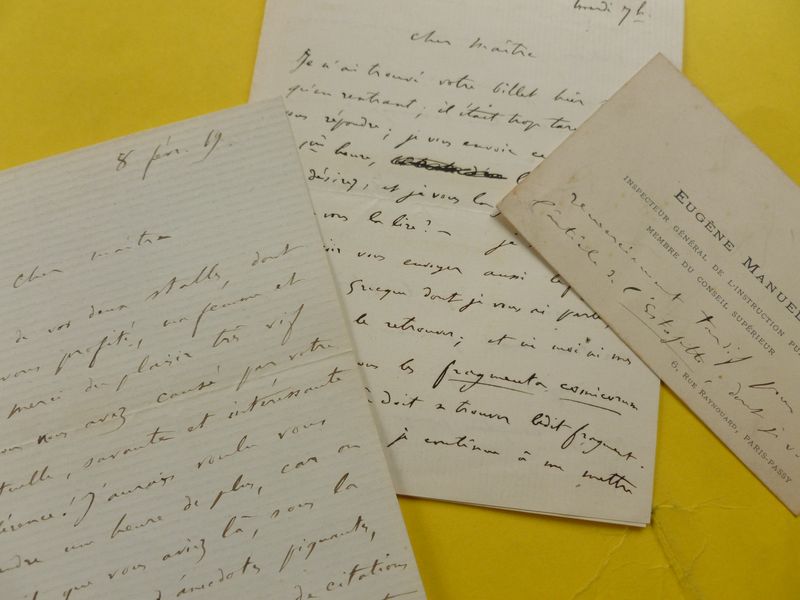 8 févr. 19.
Cher maître
de vos deux stalles, dont
vous profité, ma femme et
merci du plaisir très vif
nous avez causé par votre
tuelle, savante et intéressante
férence! J'aurais voulu vous
endre une heure de plus, car on
que vous aviez là, sous la
d'anecdotes piquantes,
de citations
mardi 7 h.
Cher maître
Je n'ai trouvé votre billet hier
qu'en rentrant; il était trop tard
vous répondre; je vous envoie ce
heure,
désirez, et je vous
vous la lire? — je
vous envoyer aussi le
Grecque dont je vous ai parlé,
le retrouver; et
les fragmenta comicorum
doit se trouver ledit fragment.
je continue à me mettre
EUGÈNE MANUEL
INSPECTEUR GÉNÉRAL DE L'INSTRUCTION PU
MEMBRE DU CONSEIL SUPÉRIEUR
remerciement tardif pour
l'article de l'Estafette, dont je
6, RUE RAYNOUARD, PARIS-PASSY